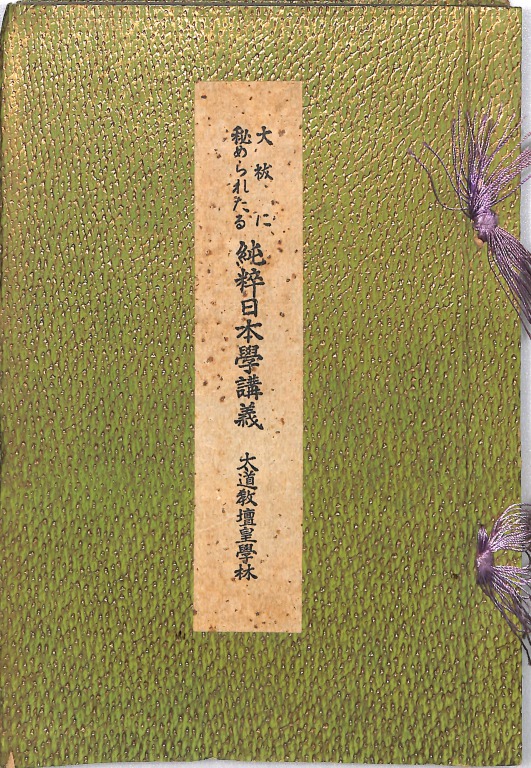 大祓に
秘められたる
純粋日本學講義
太道教壇皇學林